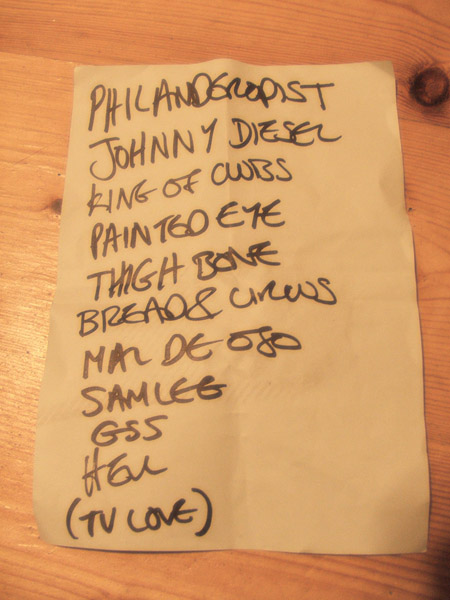 PHILANDEROPIST
JOHNNY DIESEL
KING OF CLUBS
PAINTED EYE
THIGH BONE
BREAD & CIRCUS
MAL DE OJO
SAMLEE
GSS
HELL
(TV LOVE)